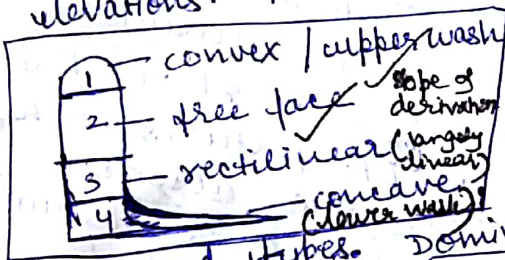 elevations.
convex / upper wash
1
2 - free face slope of derivation
3 rectilinear (largely linear)
4 concave (lower wash)
types. Domi